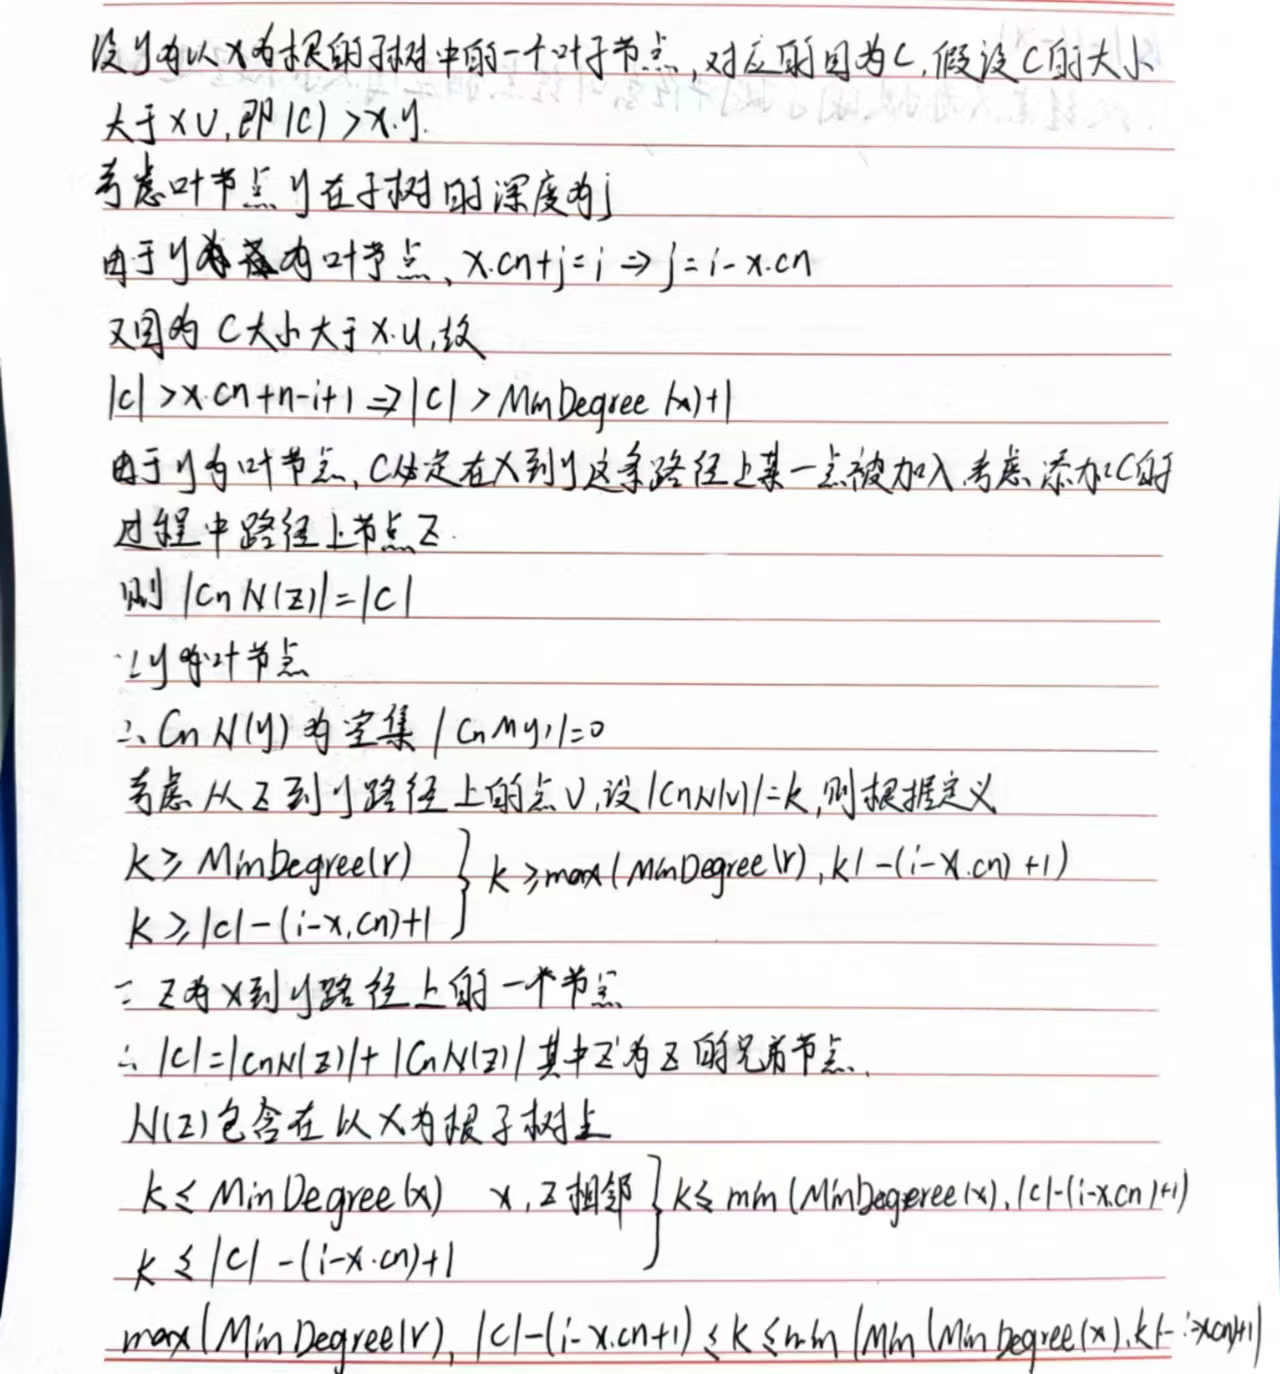 设y为以x为根的子树中的一个叶子节点,对应的团为C,假设C的大小
大于xU,即|C|>x.y.
考虑叶节点y在子树的深度为j
由于y为叶节点、x.cn+j=i⇒j=i-x.cn
又因为C大小大于x.u,故
|c|>x.cn+n-i+1⇒|C|>MinDegree(x)+1
由于y为叶节点,C必定在x到y这条路径上某一点被加入.考虑添加C的
过程中路径上节点Z.
则|C∩N(Z)|=|C|
∵y为叶节点
∴C∩N(y)为空集|C∩N(y)|=0
考虑从Z到y路径上的点V,设|C∩N(v)|=k,则根据定义
k≥MinDegree(r) } k≥max(MinDegree(r),k|-(i-x.cn)+1)
k≥|c|-(i-x.cn)+1
∵Z为x到y路径上的一个节点
∴|C|=|C∩N(Z)|+|C∩N(Z)|其中Z'为Z的兄弟节点.
N(Z)包含在以x为根子树上
k≤MinDegree(x) x,Z相邻 } k≤min(MinDegeree(x),|c|-(i-x.cn)+1)
k≤|C|-(i-x.cn)+1
max(MinDegree(r),|c|-(i-x.cn+1)≤k≤min(Min(MinDegree(x),k|-i-x.cn)+1)